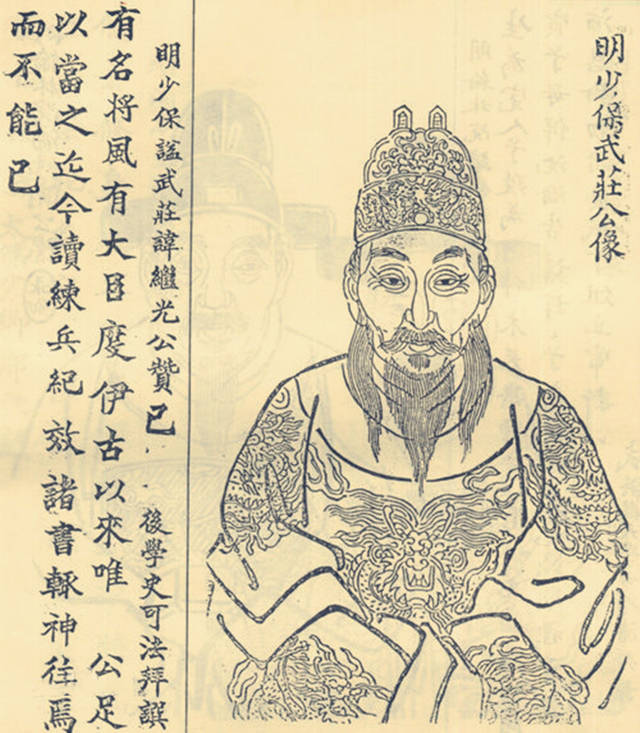 明少保武莊公像
明少保謚武莊諱繼光公贊 已 後學史可法拜譔
有名将風有大臣度伊古以來唯 公足
以當之迄今讀練兵紀效諸書輒神往焉
而不能已